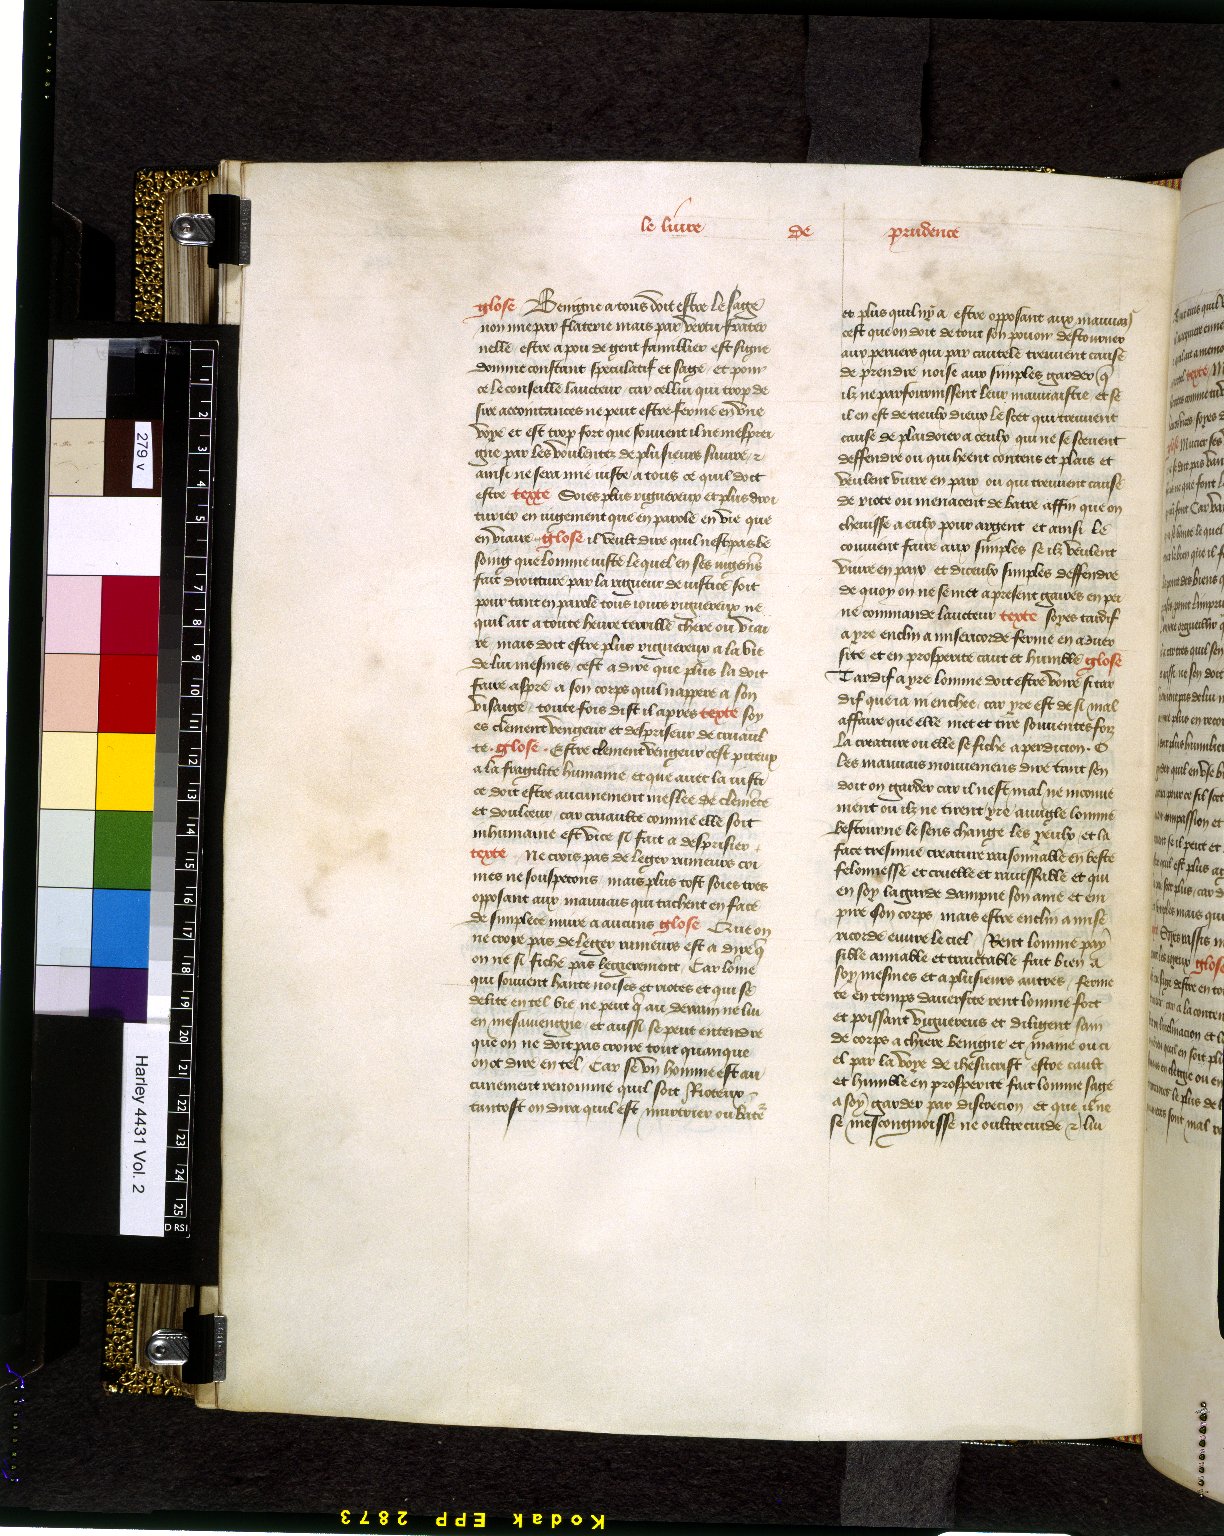 le liure de prudence
glose Benigne a tous doit estre le sage
non mie par flaterie mais par vertu frater
nelle estre a pou de gent familier est signe
domme constant speculatif et sage et pour
ce le conseille lauteur car cellui qui trop de
sire accointances ne peut estre ferme en vne
voye et est trop fort que souuent il ne mesprei
gne par les voulentez de plusieurs suiure et
ainsi ne sera mie iuste a tous ce quil doit
estre texte Soies plus riguereux et plus droi
turier en iugement que en parole en vie que
en viaire glose il veult dire quil nest pas be
soing que lomme iuste le quel en ses iugemens
fait droitture par la rigueur de iustice soit
pour tant en parole tous iours riguereux ne
quil ait a toute heure terrille chere ou viai
re mais doit estre plus riguereux a la vie
de lui mesmes cest a dire que plus la doit
faire aspre a son corps quil nappere a son
visaige toute fois dist il apres texte soy
es clement vengeur et despriseur de cruaul
te glose Estre clement vengeur cest piteux
a la fragilite humaine et que auec la iusti
ce doit estre aucunement meslee de clemence
et doulceur car cruaulte comme elle soit
inhumaine est vice si fait a desprisier
texte Ne crois pas de leger rumeurs cri
mes ne souspecons mais plus tost soies tres
opposant aux mauuais qui tachent en face
de simplece nuire a aucuns glose Que on
ne croye pas de leger rumeurs est a dire q̄
on ne si fiche pas legierement Car lōme
qui souuent hante noises et riotes et qui se
delite en tel vie ne peut q̄ au derrain ne lui
en mesauiengne et aussi se peut entendre
que on ne doit pas croire tout quanque
on ot dire en tel Car se vn homme est au
cunement renomme quil soit Rioteux
tantost on dira quil est murtrier ou bat
et plus quil ny a estre opposant aux mauuais
cest que on doit de tout son pouoir destourner
aux peruers qui par cautele treuuent cause
de prendre noise aux simples garder q̄
ilz ne parfournissent leur mauuaistie et se
il en est de tieulx dieux le scet qui treuuent
cause de plaidoier a ceulx qui ne se sceuent
deffendre ou qui heent contens et plais et
veulent viure en paix ou qui treuuent cause
de riote ou menacent de batre affin que on
cheuisse a eulx pour argent et ainsi le
couuient faire aux simples se ilz veulent
viure en paix et diceulx simples deffendre
de quoy on ne se met a present gaires en pei
ne commande lauteur texte soyes tardif
a yre enclin a misericorde ferme en aduer
site et en prosperite caut et humble glose
Tardif a yre lomme doit estre voire si tar
dif que ia ni enchee car yre est de si mal
affaire que elle met et tire souuentes fois
la creature ou elle se fiche a perdicion O
les mauuais mouuemens dire tant sen
doit on garder car il nest mal ne inconue
nient ou ilz ne tirent yre auugle lomme
bestourne le sens change les yeulx et la
face tresmue creature raisonnable en beste
felonnesse et cruelle et rauissable et qui
en soy la garde dampne son ame et em
pire son corps mais estre enclin a mise
ricorde euure le ciel Rent lomme pay
sible amiable et traictable fait bien a
soy mesmes et a plusieurs autres ferme
te en temps dauersite rent lomme fort
et poissant viguereus et diligent sain
de corps a chiere benigne et maine ou ci
el par la voye de ihesucrist estre cault
et humble en prosperite fait lomme sage
a soy garder par discrecion et que il ne
se mescongnoisse ne oultrecuide et lui
279 v
Harley 4431 Vol. 2
Kodak EPP 2873